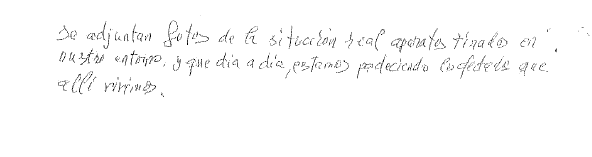 Se adjuntan fotos de la situación real aparatos tirados en
nuestro entorno. y que dia a dia, estamos padeciendo los que
alli vivimos.